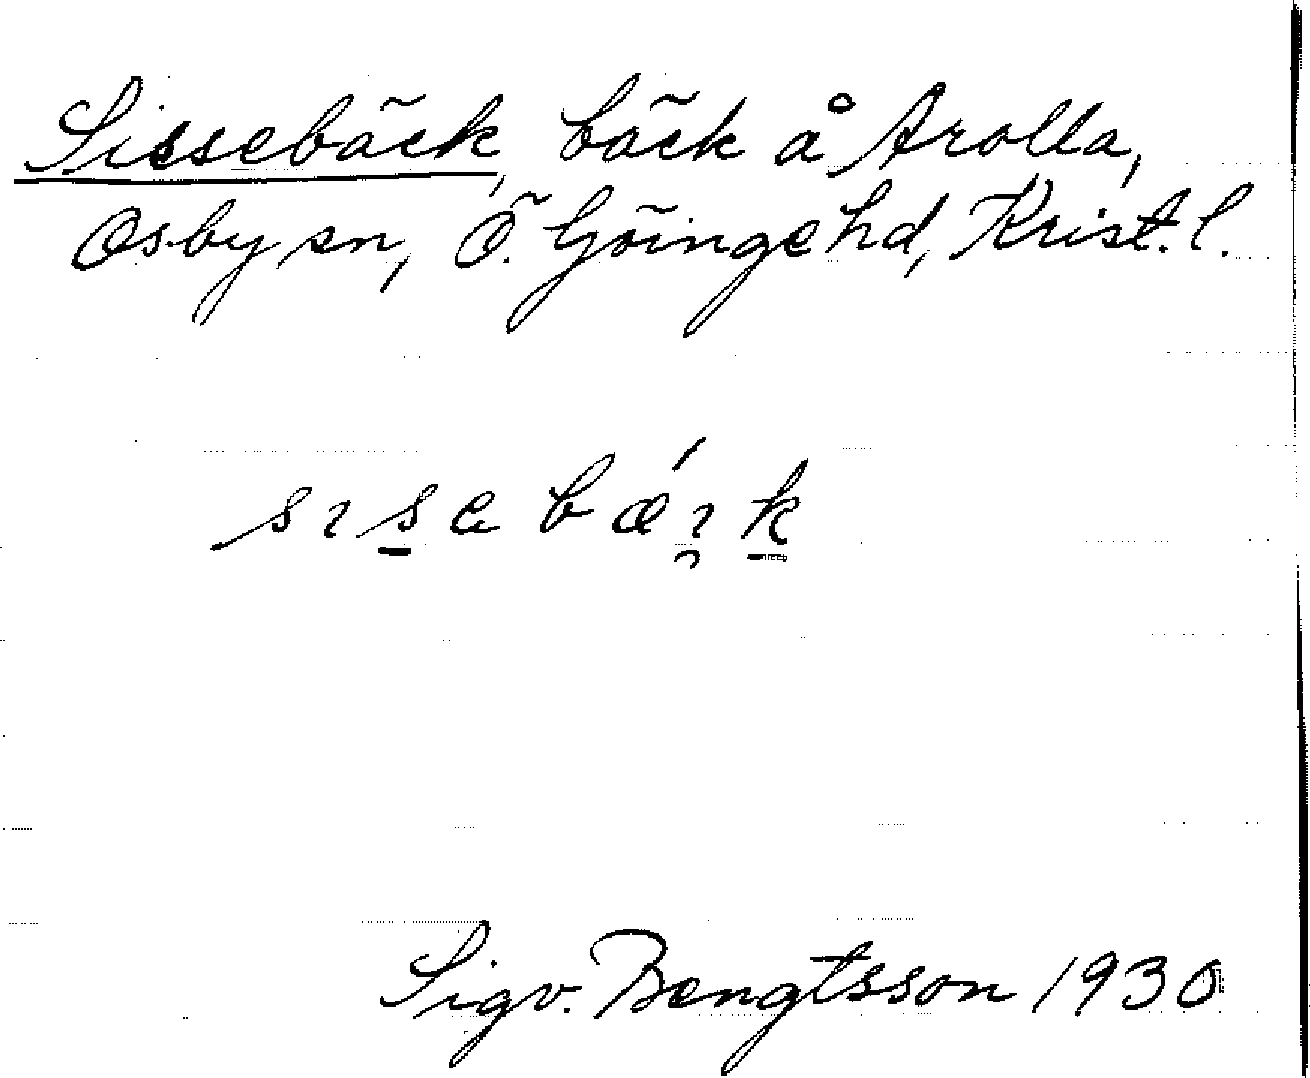 Sissebäck, bäck å Arolla,
Osby sn, Ö. Göinge hd, Krist. l.
sɪs̲ebǽɪ̯k̲
Sigv. Bengtsson 1930